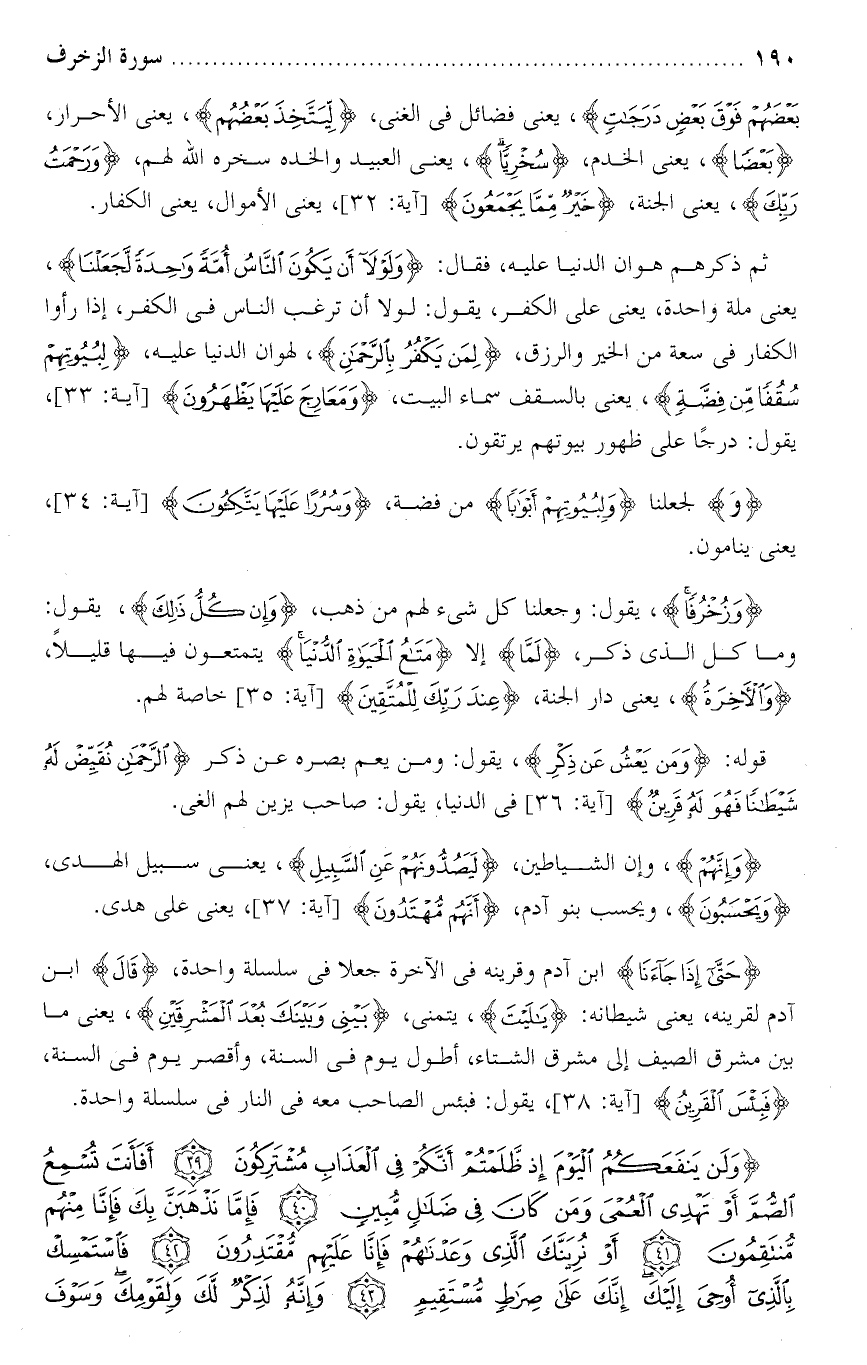 ١٩٠ ........................................................................ سورة الزخرف
بَعْضَهُمْ فَوْقَ بَعْضٍ دَرَجَٰتٍ﴾، يعنى فضائل فى الغنى، ﴿لِّيَتَّخِذَ بَعْضُهُم﴾، يعنى الأحرار،
﴿بَعْضًا﴾، يعنى الخدم، ﴿سُخْرِيًّاۗ﴾، يعنى العبيد والخده سخره الله لهم، ﴿وَرَحْمَتُ
رَبِّكَ﴾، يعنى الجنة، ﴿خَيْرٌ مِّمَّا يَجْمَعُونَ﴾ [آية: ٣٢]، يعنى الأموال، يعنى الكفار.
ثم ذكرهم هوان الدنيا عليه، فقال: ﴿وَلَوْلَآ أَن يَكُونَ ٱلنَّاسُ أُمَّةً وَٰحِدَةً لَّجَعَلْنَا﴾،
يعنى ملة واحدة، يعنى على الكفر، يقول: لولا أن ترغب الناس فى الكفر، إذا رأوا
الكفار فى سعة من الخير والرزق، ﴿لِمَن يَكْفُرُ بِٱلرَّحْمَٰنِ﴾، لهوان الدنيا عليه، ﴿لِبُيُوتِهِمْ
سُقُفًا مِّن فِضَّةٍ﴾، يعنى بالسقف سماء البيت، ﴿وَمَعَارِجَ عَلَيْهَا يَظْهَرُونَ﴾ [آية: ٣٣]،
يقول: درجًا على ظهور بيوتهم يرتقون.
﴿وَ﴾ لجعلنا ﴿وَلِبُيُوتِهِمْ أَبْوَٰبًا﴾ من فضة، ﴿وَسُرُرًا عَلَيْهَا يَتَّكِـُٔونَ﴾ [آية: ٣٤]،
يعنى ينامون.
﴿وَزُخْرُفًاۚ﴾، يقول: وجعلنا كل شىء لهم من ذهب، ﴿وَإِن كُلُّ ذَٰلِكَ﴾، يقول:
وما كل الذى ذكر، ﴿لَمَّا﴾ إلا ﴿مَتَٰعُ ٱلْحَيَوٰةِ ٱلدُّنْيَاۚ﴾ يتمتعون فيها قليلاً،
﴿وَٱلْءَاخِرَةُ﴾، يعنى دار الجنة، ﴿عِندَ رَبِّكَ لِلْمُتَّقِينَ﴾ [آية: ٣٥] خاصة لهم.
قوله: ﴿وَمَن يَعْشُ عَن ذِكْرِ﴾، يقول: ومن يعم بصره عن ذكر ﴿ٱلرَّحْمَٰنِ نُقَيِّضْ لَهُۥ
شَيْطَٰنًا فَهُوَ لَهُۥ قَرِينٌ﴾ [آية: ٣٦] فى الدنيا، يقول: صاحب يزين لهم الغى.
﴿وَإِنَّهُمْ﴾، وإن الشياطين، ﴿لَيَصُدُّونَهُمْ عَنِ ٱلسَّبِيلِ﴾، يعنى سبيل الهدى،
﴿وَيَحْسَبُونَ﴾، ويحسب بنو آدم، ﴿أَنَّهُم مُّهْتَدُونَ﴾ [آية: ٣٧]، يعنى على هدى.
﴿حَتَّىٰٓ إِذَا جَآءَنَا﴾ ابن آدم وقرينه فى الآخرة جعلا فى سلسلة واحدة، ﴿قَالَ﴾ ابن
آدم لقرينه، يعنى شيطانه: ﴿يَٰلَيْتَ﴾، يتمنى، ﴿بَيْنِى وَبَيْنَكَ بُعْدَ ٱلْمَشْرِقَيْنِ﴾، يعنى ما
بين مشرق الصيف إلى مشرق الشتاء، أطول يوم فى السنة، وأقصر يوم فى السنة،
﴿فَبِئْسَ ٱلْقَرِينُ﴾ [آية: ٣٨]، يقول: فبئس الصاحب معه فى النار فى سلسلة واحدة.
﴿وَلَن يَنفَعَكُمُ ٱلْيَوْمَ إِذ ظَّلَمْتُمْ أَنَّكُمْ فِى ٱلْعَذَابِ مُشْتَرِكُونَ ٣٩ أَفَأَنتَ تُسْمِعُ
ٱلصُّمَّ أَوْ تَهْدِى ٱلْعُمْىَ وَمَن كَانَ فِى ضَلَٰلٍ مُّبِينٍ ٤٠ فَإِمَّا نَذْهَبَنَّ بِكَ فَإِنَّا مِنْهُم
مُّنتَقِمُونَ ٤١ أَوْ نُرِيَنَّكَ ٱلَّذِى وَعَدْنَٰهُمْ فَإِنَّا عَلَيْهِم مُّقْتَدِرُونَ ٤٢ فَٱسْتَمْسِكْ
بِٱلَّذِىٓ أُوحِىَ إِلَيْكَۖ إِنَّكَ عَلَىٰ صِرَٰطٍ مُّسْتَقِيمٍ ٤٣ وَإِنَّهُۥ لَذِكْرٌ لَّكَ وَلِقَوْمِكَۖ وَسَوْفَ